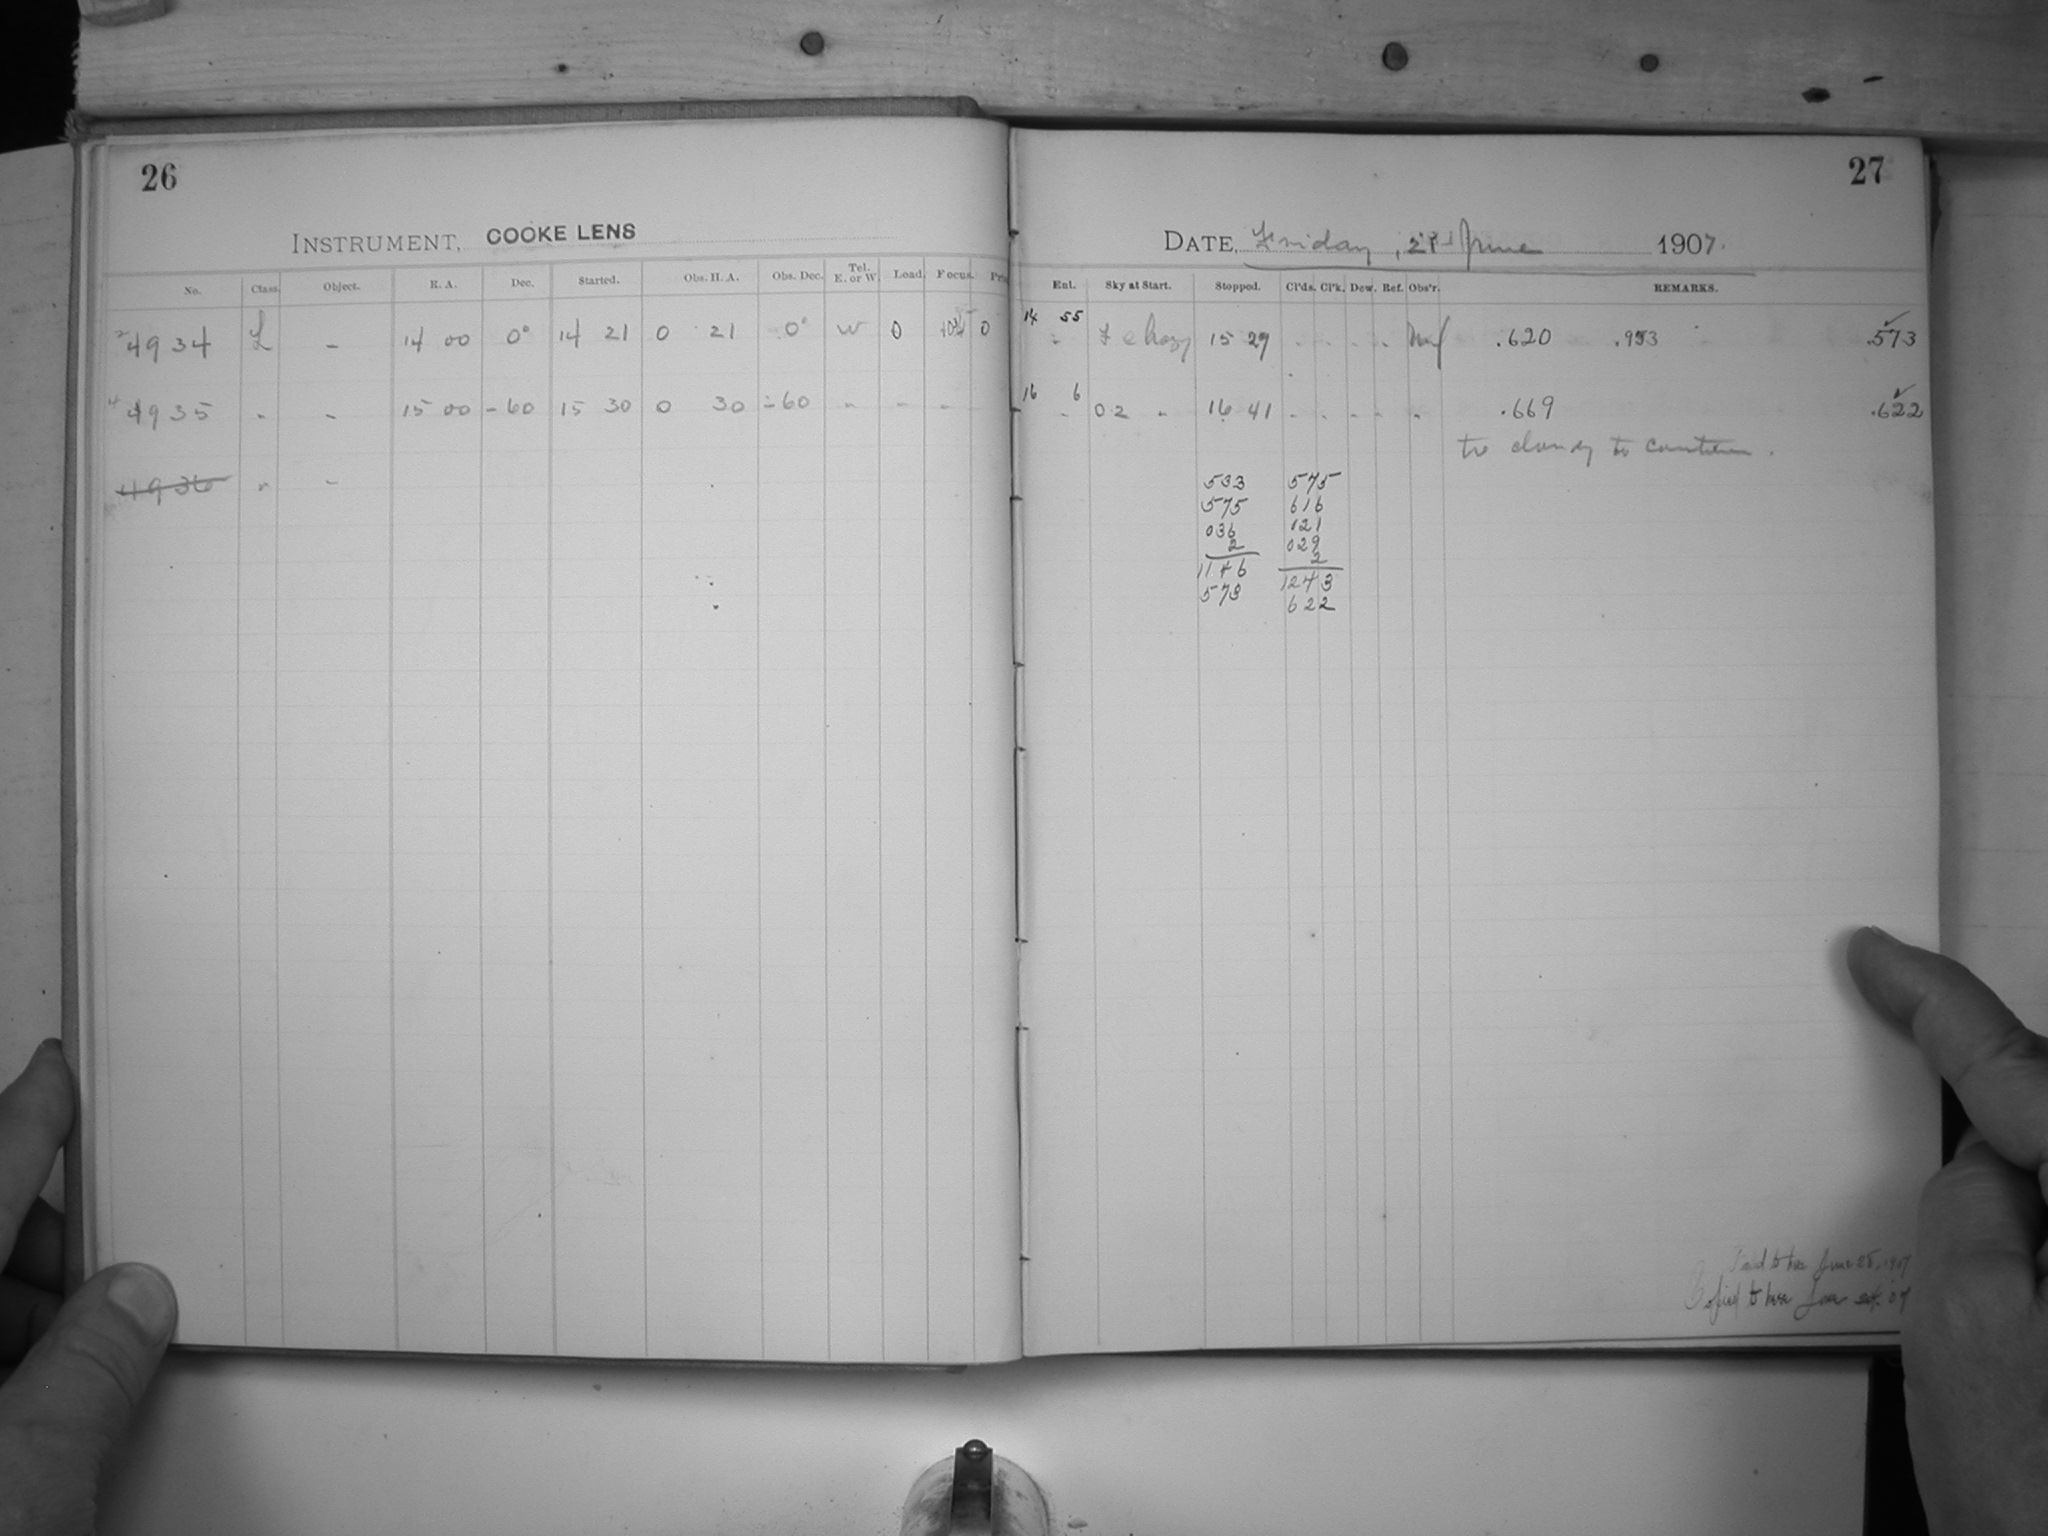 26
INSTRUMENT, COOKE LENS
No. Class. Object. R. A. Dec. Started. Obs. H. A. Obs. Dec. Tel. E. or W. Load. Focus.
4934 L - 14 00 0° 14 21 0 21 0° W 0 0
4935 " - 15 00 -60 15 30 0 30 -60 " - -
4936 " -
27
DATE, Friday, 21st June 1907.
Ent. Sky at Start. Stopped. Cl'ds. Cl'k. Dew. Ref. Obs'r. REMARKS.
14 55 hazy 15 29 .620 .953 .573
16 6 02 " 16 41 .669 .622
to cloudy to continue.
533 575
575 616
036 121
2 029
1146 2
573 1243
622
June 28, 1907
Copied to here